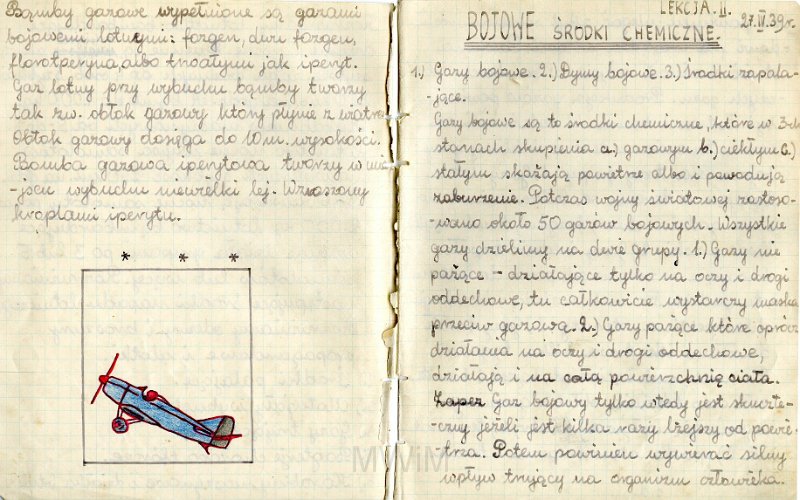 Bomby gazowe wypełnione są gazami
bojowemi lotnymi: fozgen, dwu fozgen,
albo trwałymi jak iperyt.
Gaz lotny przy wybuchu bomby tworzy
tak zw. obłok gazowy który płynie z wiatrem
Obłok gazowy dosięga do 10 m. wysokości.
Bomba gazowa iperytowa tworzy w mie-
-jscu wybuchu niewielki lej.
kroplami iperytu.
* * *
LEKCJA. II.
27.IV.39r.
BOJOWE ŚRODKI CHEMICZNE.
1.) Gazy bojowe. 2.) Dymy bojowe. 3.) Środki zapala-
-jące.
Gazy bojowe są to środki chemiczne, które w 3-ch
stanach skupienia a.) gazowym b.) ciekłym c.)
stałym skażają powietrze albo i powodują
zaburzenie. Potczas wojny światowej zastoso-
-wano około 50 gazów bojowych. Wszystkie
gazy dzielimy na dwie grupy. 1.) Gazy nie
pażące - działające tylko na oczy i drogi
oddechowe, tu całkowicie wystarczy maska
przeciw gazowa. 2.) Gazy pażące które oprócz
działania na oczy i drogi oddechowe,
działają i na całą powierzchnię ciała.
Gaz bojowy tylko wtedy jest skute-
-czny jeżeli jest kilka razy lżejszy od powie-
-trza. Potem powinien wywierać silny
wpływ trujący na organizm człowieka.
MWiM